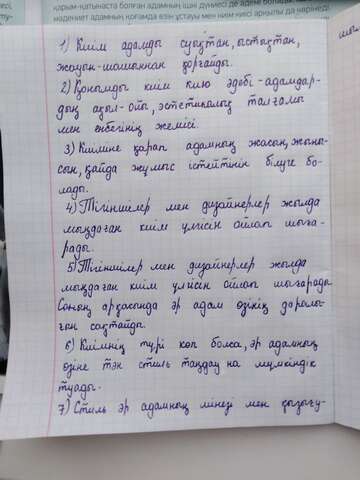 қарым-қатынаста болған адамның ішкі дүниесі де әдемі бола
мәдениет адамның қоғамда өзін ұстауы мен киім киісі арқылы да көрінеді
1) Киім адамды суықтан, ыстықтан,
жауын-шашыннан қорғайды.
2) Қонымды киім кию әдебі - адамдар-
дың ақыл-ойы, эстетикалық талғамы
мен еңбегінің жемісі.
3) Киіміне қарап адамның жасын, жыны-
сын, қайда жұмыс істейтінін білуге бо-
лады.
4) Тігіншілер мен дизайнерлер жылда
мыңдаған киім үлгісін ойлап шыға-
рады.
5) Тігіншілер мен дизайнерлер жылда
мыңдаған киім үлгісін ойлап шығарады
Соның арқасында әр адам өзінің даралы-
ғын сақтайды.
6) Киімнің түрі көп болса, әр адамның
өзіне тән стиль таңдауна мүмкіндік
туады.
7) Стиль әр адамның мінезі мен қызығу-